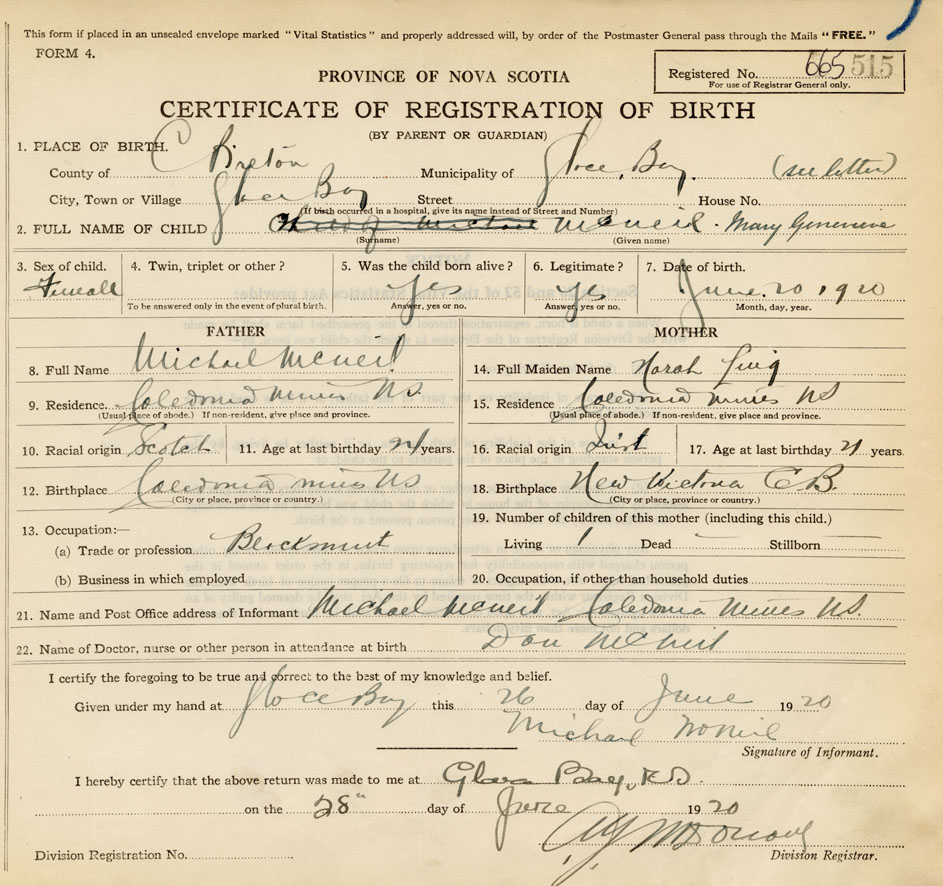 This form if placed in an unsealed envelope marked "Vital Statistics" and properly addressed will, by order of the Postmaster General pass through the Mails "FREE."
FORM 4.
PROVINCE OF NOVA SCOTIA
Registered No. 665 515
For use of Registrar General only.
CERTIFICATE OF REGISTRATION OF BIRTH
(BY PARENT OR GUARDIAN)
1. PLACE OF BIRTH.
County of C Breton Municipality of Glace Bay. (see letter)
City, Town or Village Glace Bay Street House No.
(If birth occurred in a hospital, give its name instead of Street and Number)
2. FULL NAME OF CHILD McNeil - Mary Genevieve
(Surname) (Given name)
3. Sex of child. 4. Twin, triplet or other? 5. Was the child born alive? 6. Legitimate? 7. Date of birth.
Femall yes yes June 20 1920
To be answered only in the event of plural birth. Answer, yes or no. Answer, yes or no. Month, day, year.
FATHER MOTHER
8. Full Name Michael McNeil 14. Full Maiden Name Norah
9. Residence. Caledonia Mines NS. 15. Residence Caledonia Mines NS
(Usual place of abode.) If non-resident, give place and province. (Usual place of abode.) If non-resident, give place and province.
10. Racial origin Scotch 11. Age at last birthday 24 years. 16. Racial origin 17. Age at last birthday 21 years
12. Birthplace Caledonia mines NS 18. Birthplace New Victoria C.B.
(City or place, province or country.) (City or place, province or country.)
13. Occupation:— 19. Number of children of this mother (including this child.)
(a) Trade or profession. Living 1 Dead Stillborn
(b) Business in which employed 20. Occupation, if other than household duties
21. Name and Post Office address of Informant Michael McNeil Caledonia Mines NS.
22. Name of Doctor, nurse or other person in attendance at birth Dan McNeil
I certify the foregoing to be true and correct to the best of my knowledge and belief.
Given under my hand at Glace Bay this 26 day of June 1920
Michael McNeil
Signature of Informant.
I hereby certify that the above return was made to me at Glace Bay,
on the 28" day of June 1920
Division Registration No. Division Registrar.